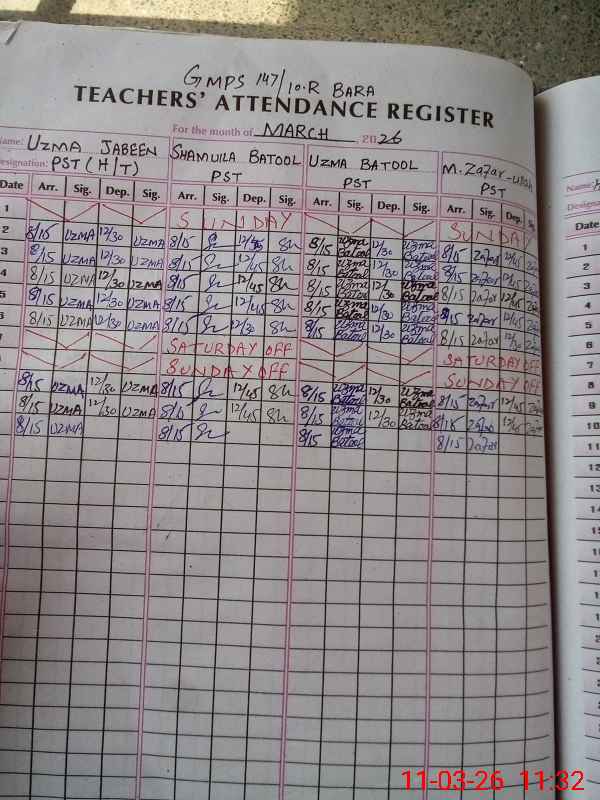 GMPS 147/10.R BARA
TEACHERS' ATTENDANCE REGISTER
For the month of MARCH, 2026
Name: UZMA JABEEN SHAMUILA BATOOL UZMA BATOOL M. Zafar-ullah
Designation: PST (H/T) PST PST PST
Date Arr. Sig. Dep. Sig. Arr. Sig. Dep. Sig. Arr. Sig. Dep. Sig. Arr. Sig. Dep. Sig.
1 SUNDAY SUNDAY
2 8/15 UZMA 12/30 UZMA 8/15 12/45 Sh 8/15 Uzma Batool 12/30 Uzma Batool 8/15 Zafar 12/45 Zafar
3 8/15 UZMA 12/30 UZMA 8/15 12/45 Sh 8/15 Uzma Batool 12/30 Uzma Batool 8/15 Zafar 12/45 Zafar
4 8/15 UZMA 12/30 UZMA 8/15 12/45 Sh 8/15 Uzma Batool 12/30 Uzma Batool 8/15 Zafar 12/45 Zafar
5 8/15 UZMA 12/30 UZMA 8/15 12/45 Sh 8/15 Uzma Batool 12/30 Uzma Batool 8/15 Zafar 12/45 Zafar
6 8/15 UZMA 12/30 UZMA 8/15 12/30 Sh 8/15 Uzma Batool 12/30 Uzma Batool 8/15 Zafar 12/30 Zafar
SATURDAY OFF SATURDAY OFF
SUNDAY OFF SUNDAY OFF
8/15 UZMA 12/30 UZMA 8/15 12/45 Sh 8/15 Uzma Batool 12/30 Uzma Batool 8/15 Zafar 12/45 Zafar
8/15 UZMA 12/30 UZMA 8/15 12/45 Sh 8/15 Uzma Batool 12/30 Uzma Batool 8/15 Zafar 12/45 Zafar
8/15 UZMA 8/15 8/15 Uzma Batool 8/15 Zafar
Name:
Designa
Date
1
2
3
4
5
6
7
8
9
10
11
12
13
14
15
11-03-26 11:32